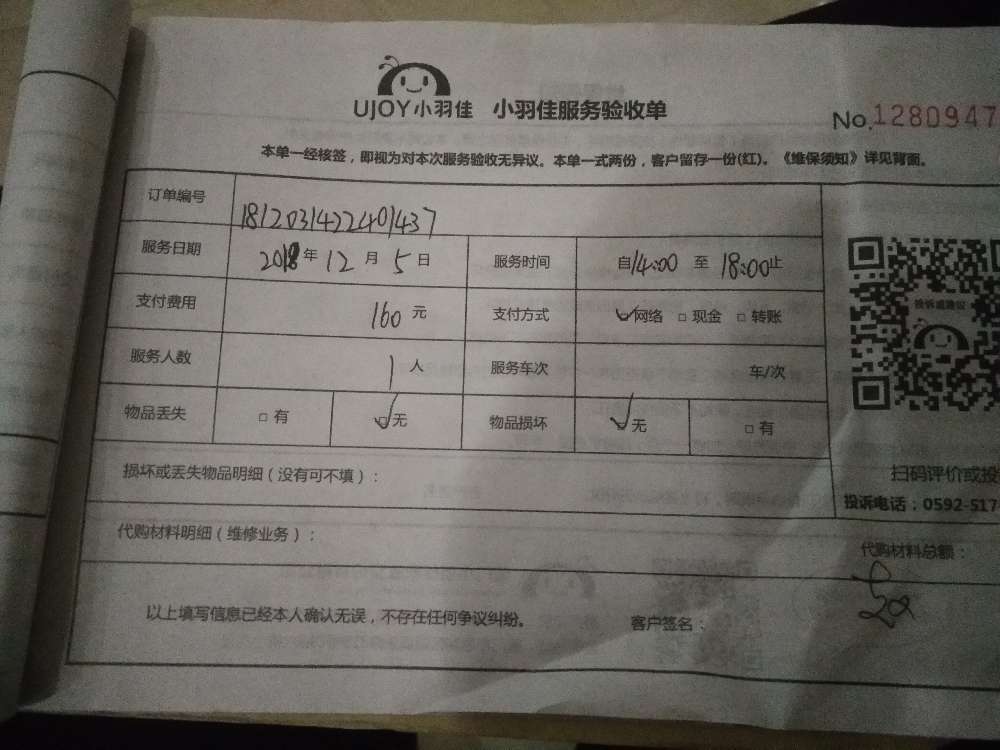 UJOY小羽佳 小羽佳服务验收单
No.1280947
本单一经核签，即视为对本次服务验收无异议。本单一式两份，客户留存一份(红)。《维保须知》详见背面。
订单编号 1812031422401437
服务日期 2018年12月5日 服务时间 自14:00至18:00止
支付费用 160元 支付方式 ☑网络 □现金 □转账
服务人数 1人 服务车次 车/次
物品丢失 □有 ☑无 物品损坏 ☑无 □有
投诉或建议
损坏或丢失物品明细（没有可不填）：
扫码评价或投
投诉电话：0592-517
代购材料明细（维修业务）：
代购材料总额：
以上填写信息已经本人确认无误，不存在任何争议纠纷。 客户签名：